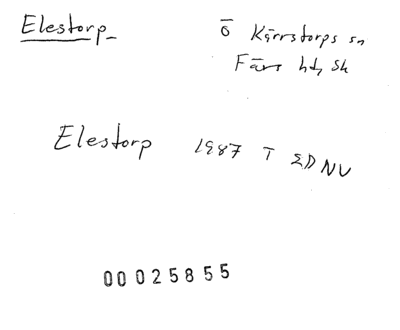 Elestorp
Ö Kärrstorps sn
Färs hd, Sk
Elestorp 1987 T EDNV
00025855